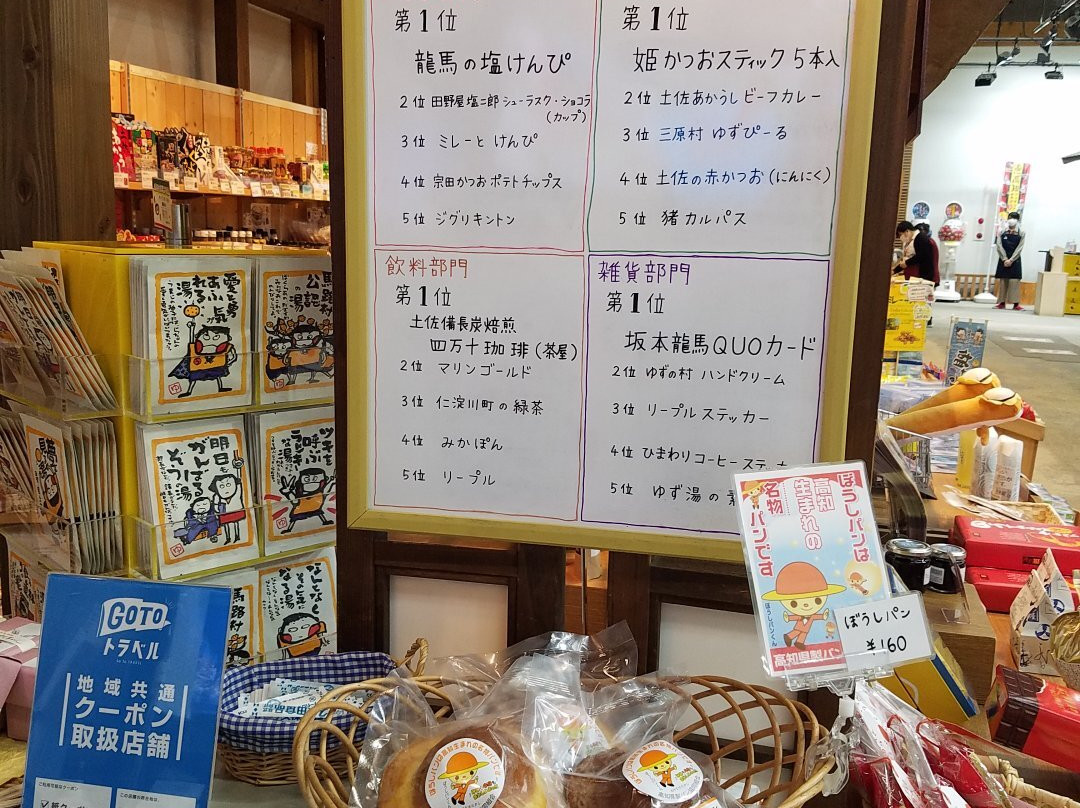 第1位
龍馬の塩けんぴ
2位 田野屋塩二郎 シューラスク・ショコラ
(カップ)
3位 ミレーと けんぴ
4位 宗田かつおポテトチップス
5位 ジグリキントン
第1位
姫かつおスティック5本入
2位 土佐あかうしビーフカレー
3位 三原村 ゆずぴーる
4位 土佐の赤かつお(にんにく)
5位 猪カルパス
飲料部門
第1位
土佐備長炭焙煎
四万十珈琲(茶屋)
2位 マリンゴールド
3位 仁淀川町の緑茶
4位 みかぽん
5位 リープル
雑貨部門
第1位
坂本龍馬QUOカード
2位 ゆずの村 ハンドクリーム
3位 リープルステッカー
4位 ひまわりコーヒーステッカー
5位 ゆず湯の素
愛と勇気
あふれる
湯
馬路村
公認
の湯
明日も
がんばる
ぞう湯
ツキを
呼ぶ
なる湯
なんとなく
その気に
なる湯
馬路村
GOTO
トラベル
地域共通
クーポン
取扱店舗
ぼうしパンは
高知
生まれの
名物
パンです
ぼうしパンくん
高知県製パン
ぼうしパン
¥160